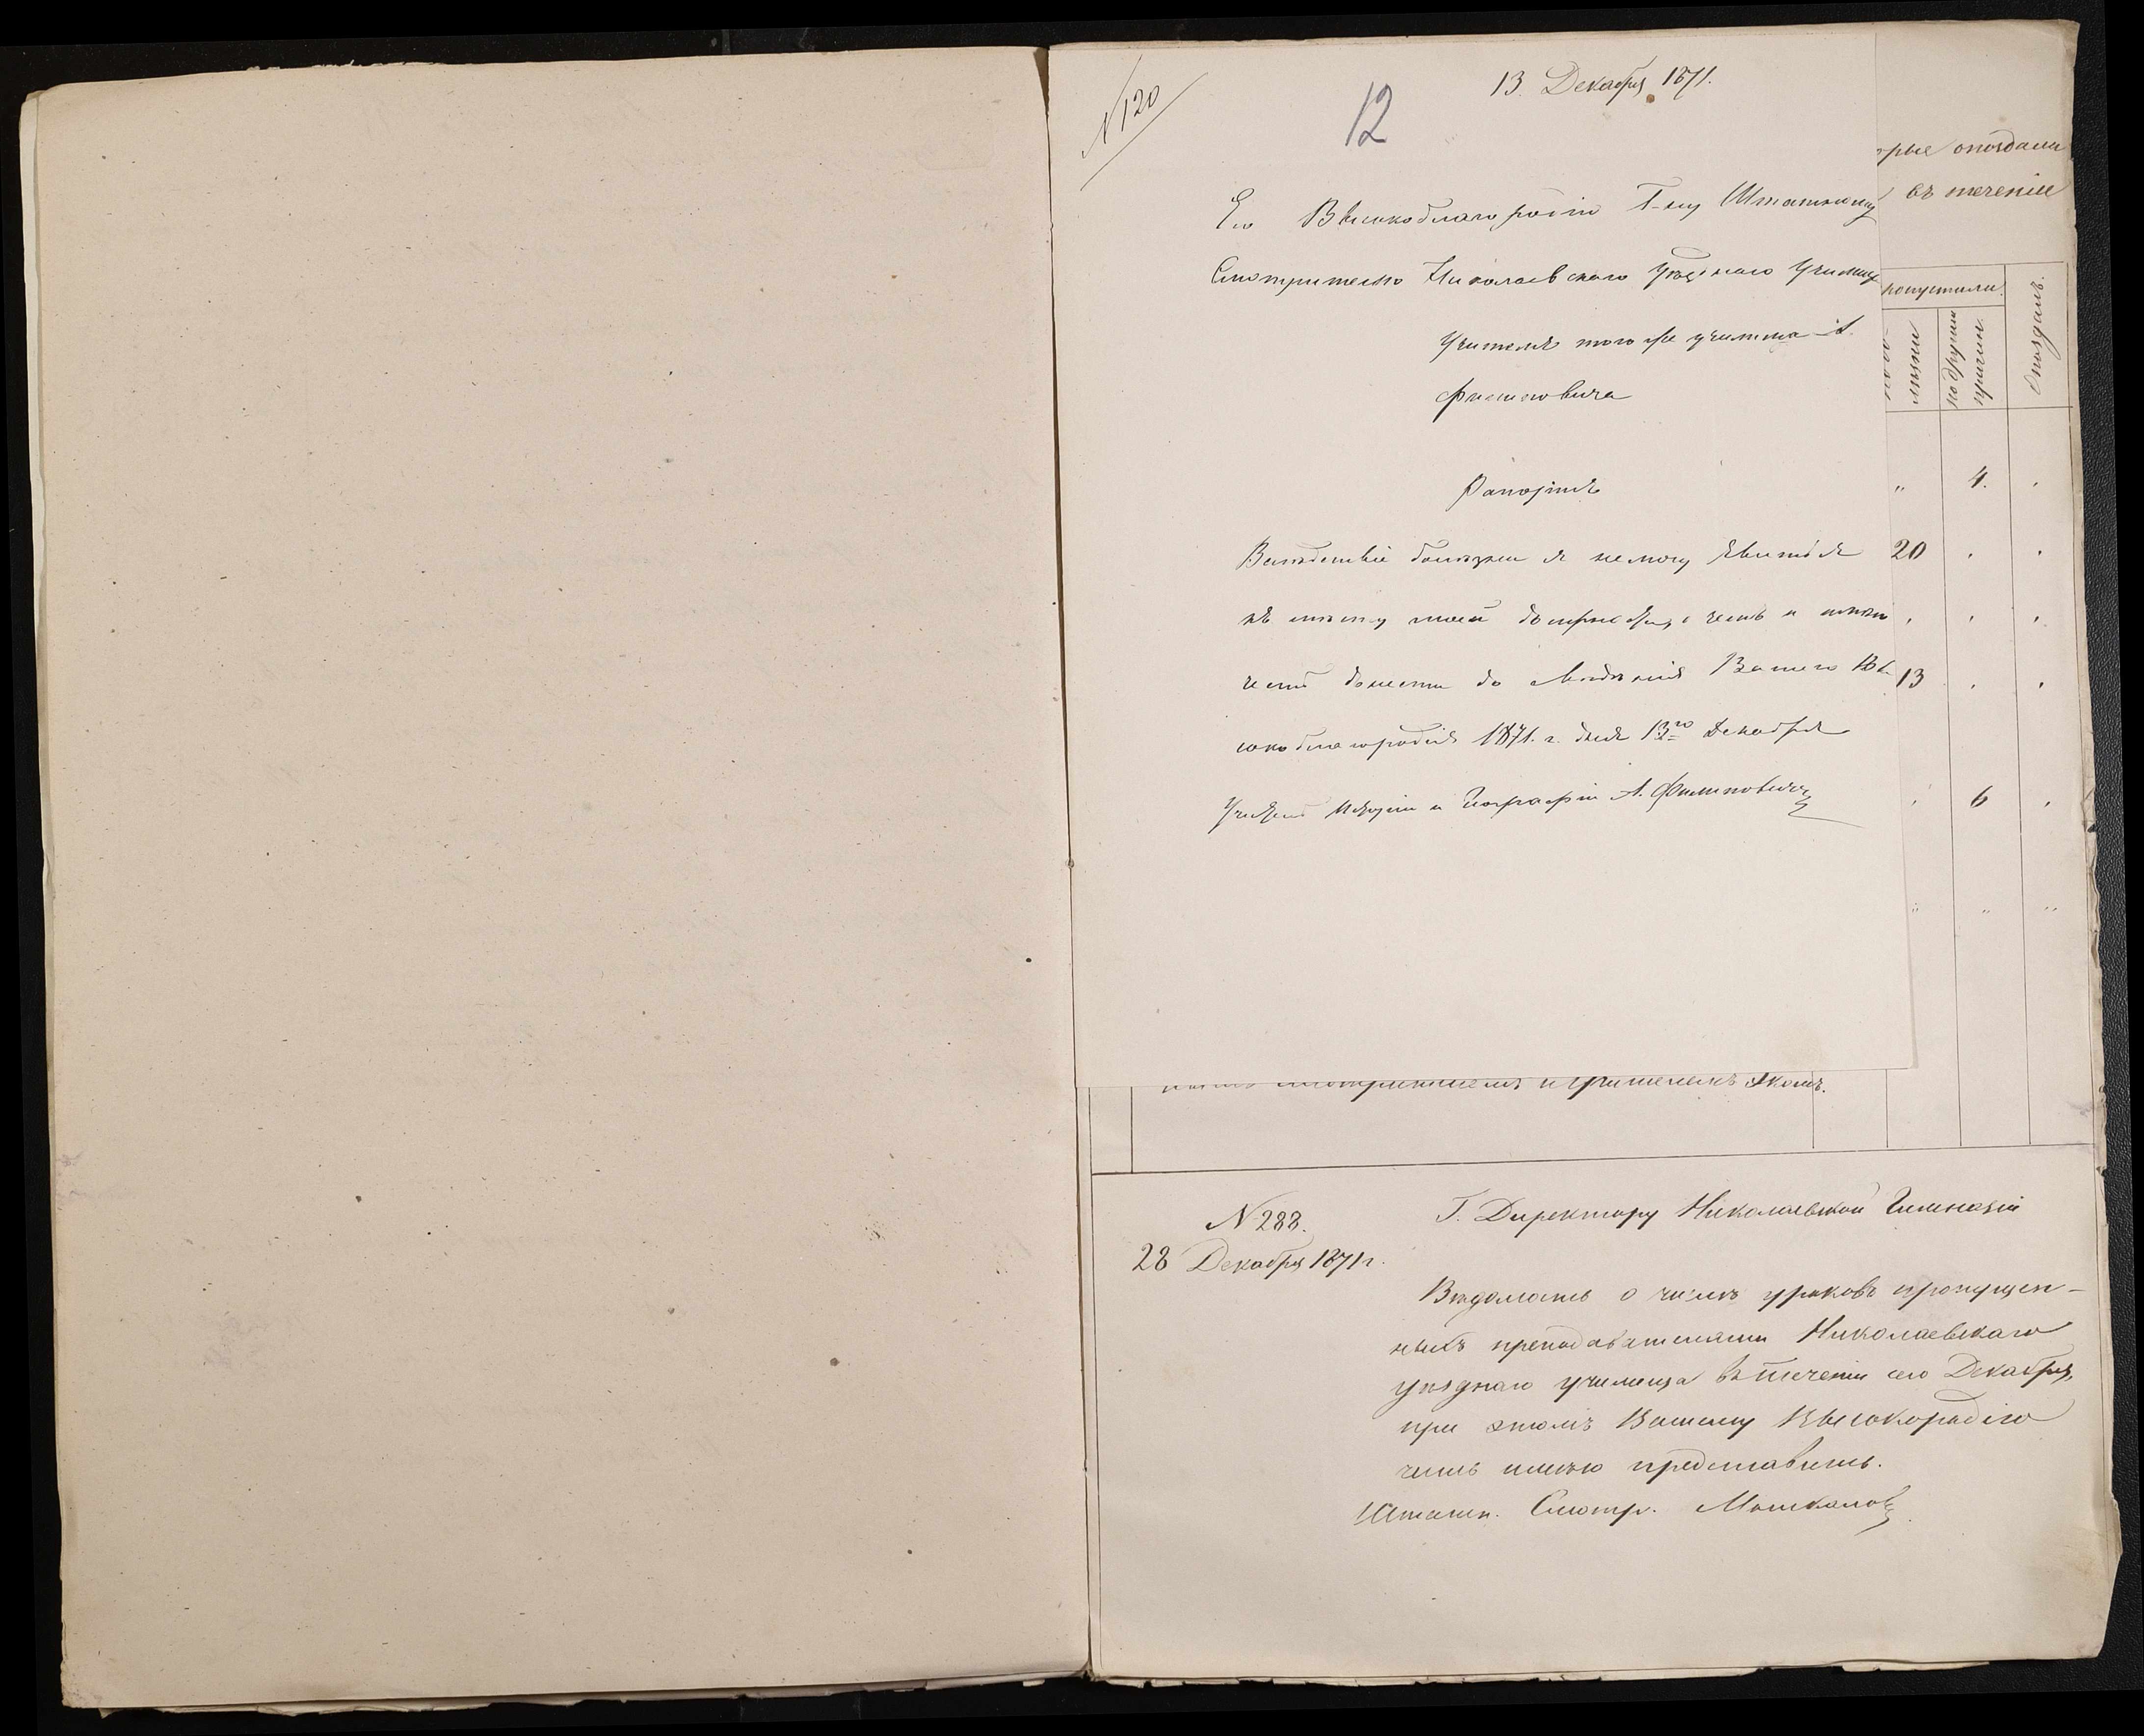 N 120
12
13. Декабря 1871.
Его Высокоблагородiю Г-ну Штатному
Смотрителю Николаевскаго Уѣзднаго Училища
Учителя того же училища А.
Филиповича
Рапортъ
Вслѣдствiе болѣзни я не могу явиться
къ мѣсту моей
честь донести до свѣдѣнiя Вашего Вы
сокоблагородiя 1871. г. дня 13го Декабря
Учитель Исторiи и Географiи А. Филиповичъ
орые опоздали
въ теченiе
ропустили.
лѣзни
по другимъ причин.
Опоздалъ.
„ 4.
20
13
6
смотрителемъ и учителемъ
N 288.
28 Декабря 1871 г.
Г. Директору Николаевской Гимназiи
Вѣдомость о числѣ уроковъ пропущен-
ныхъ преподавателями Николаевскаго
уѣзднаго училища въ теченiи сего Декабря,
при этомъ Вашему Высокородiю
честь имѣю представить.
Штатн. Смотр. Мошкаловъ